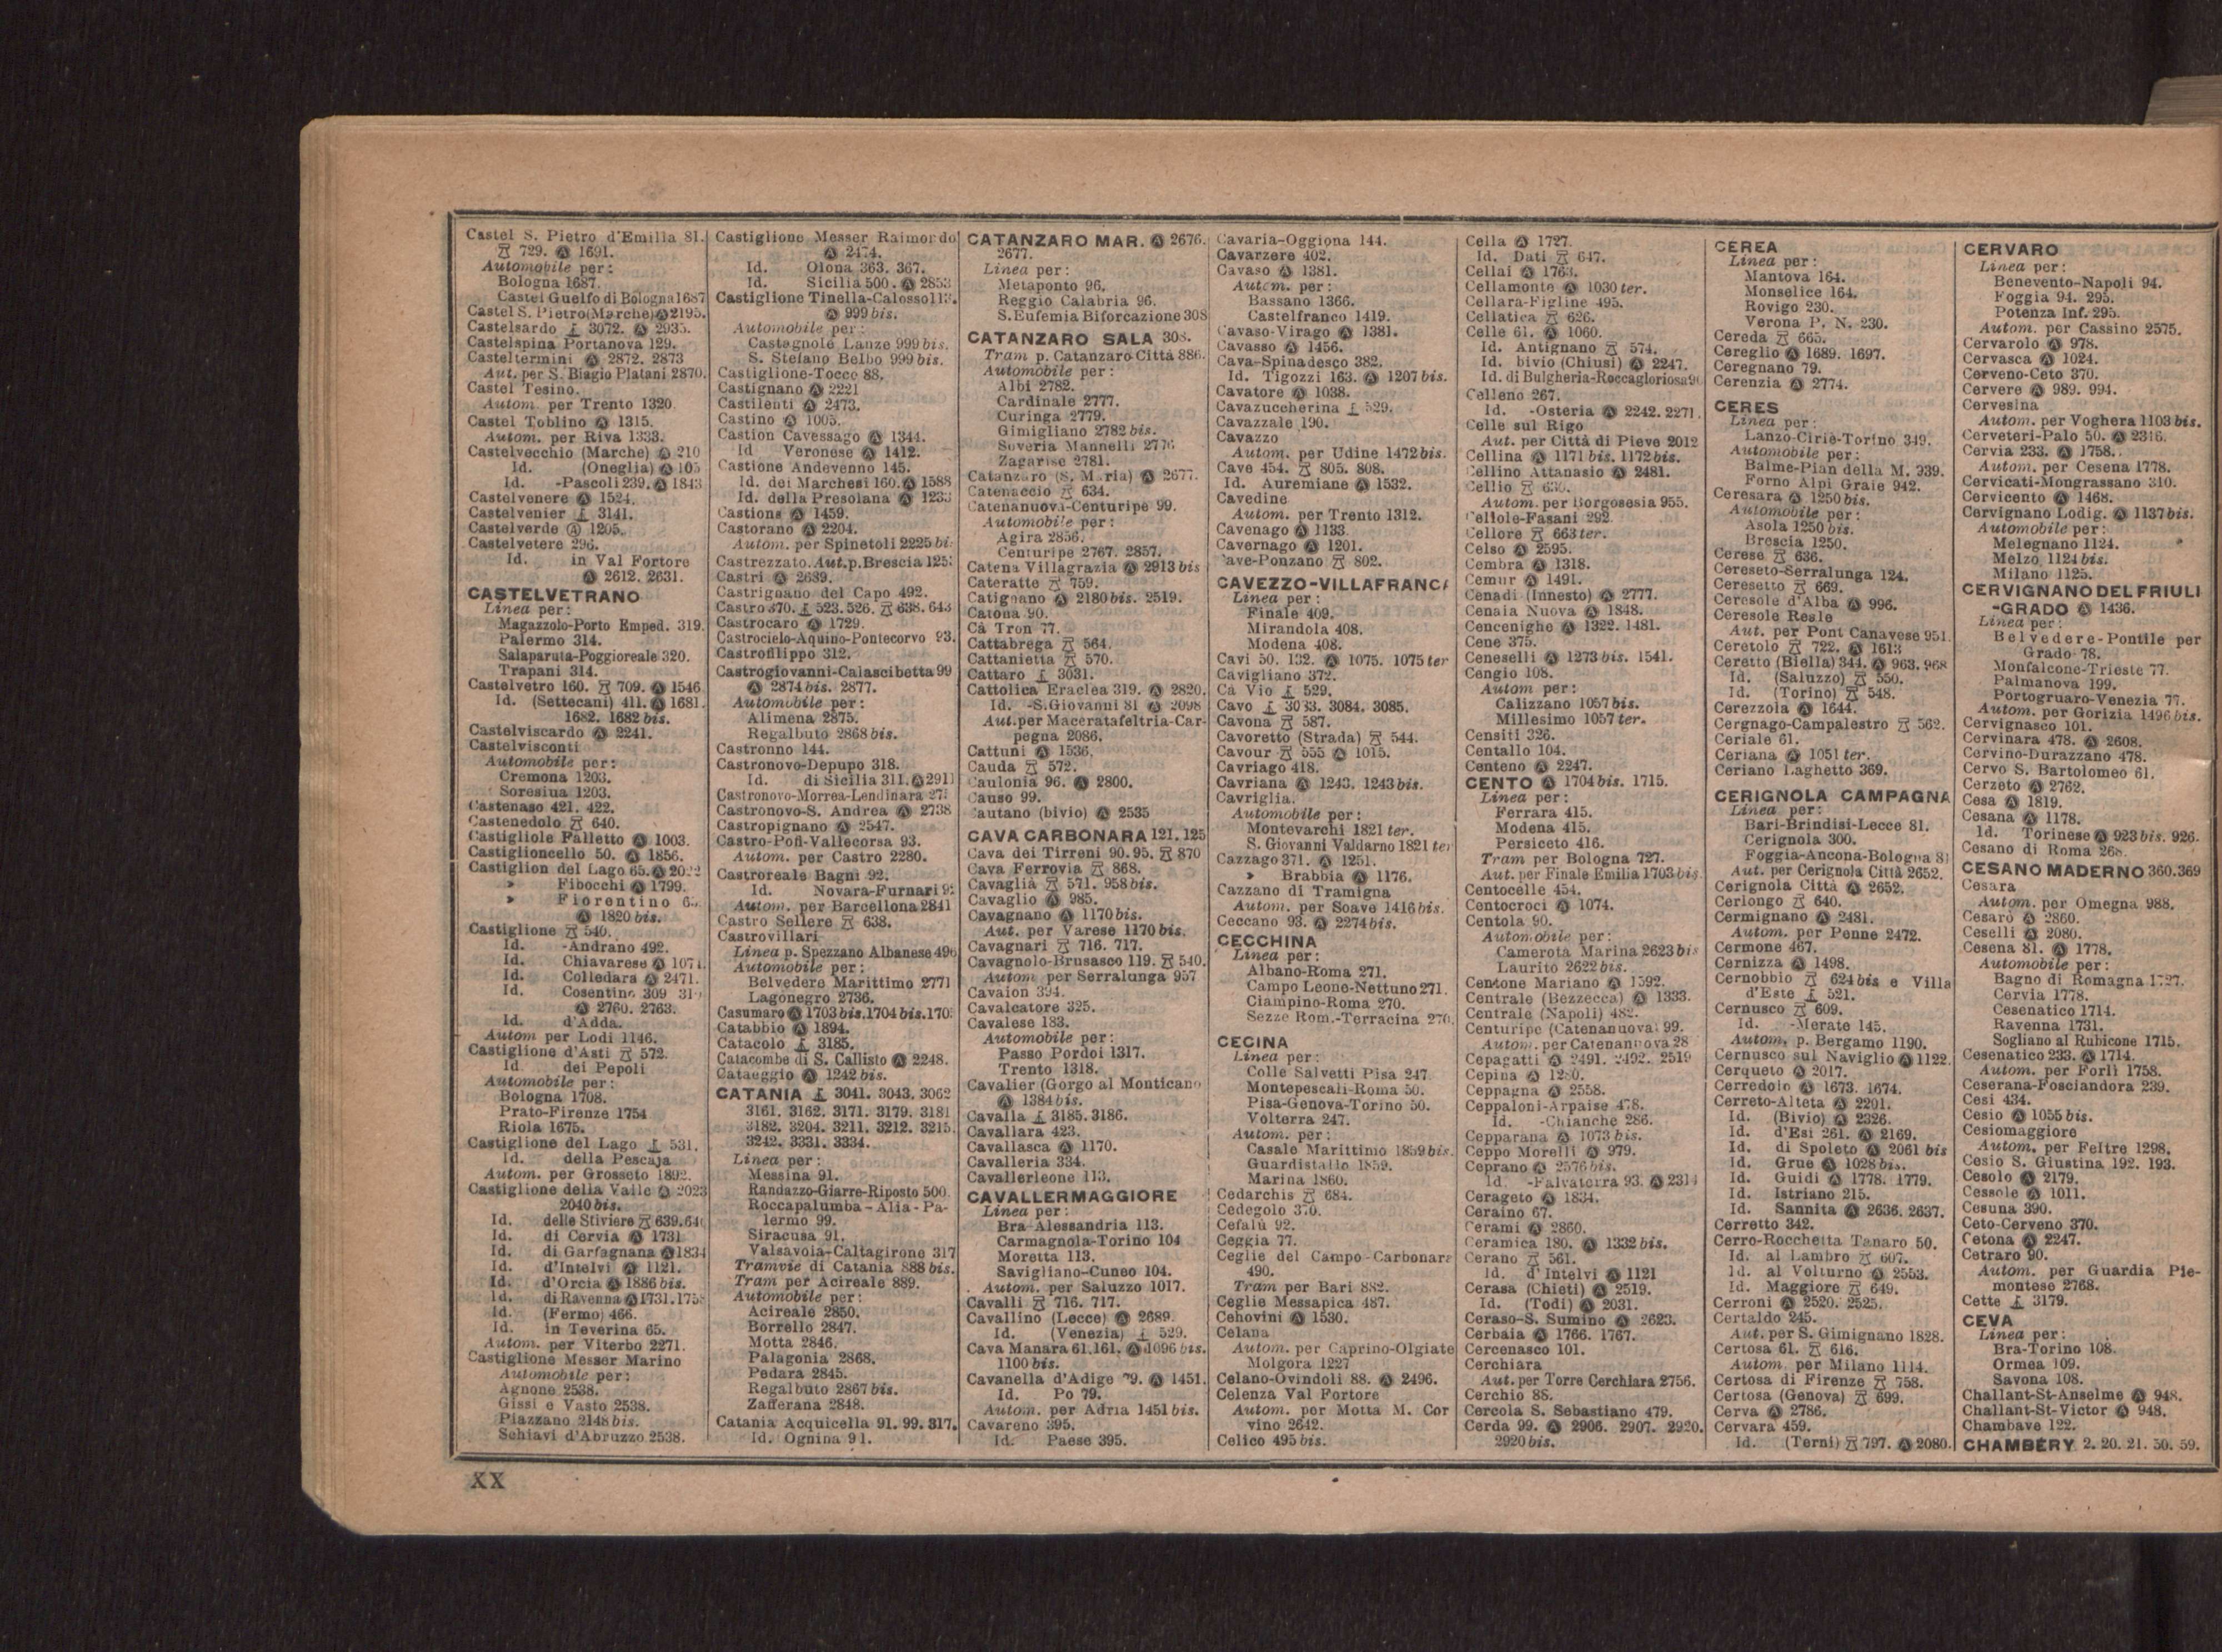 Castel S. Pietro d'Emilia 81.
729. Ⓐ 1691.
Automobile per:
Bologna 1687.
Castel Guelfo di Bologna 1687
Castel S. Pietro (Marche) Ⓐ 2195.
Castelsardo 3072. Ⓐ 2935.
Castelspina Portanova 129.
Casteltermini Ⓐ 2872. 2873
Aut. per S. Biagio Platani 2870.
Castel Tesino.
Autom. per Trento 1320
Castel Toblino Ⓐ 1315.
Autom. per Riva 1333.
Castelvecchio (Marche) Ⓐ 210
Id. (Oneglia) Ⓐ 105
Id. -Pascoli 239. Ⓐ 1843
Castelvenere Ⓐ 1524.
Castelvenier 3141.
Castelverde Ⓐ 1205.
Castelvetere 296.
Id. in Val Fortore
Ⓐ 2612. 2631.
CASTELVETRANO
Linea per:
Magazzolo-Porto Emped. 319.
Palermo 314.
Salaparuta-Poggioreale 320.
Trapani 314.
Castelvetro 160. 709. Ⓐ 1546
Id. (Settecani) 411. Ⓐ 1681.
1682. 1682 bis.
Castelviscardo Ⓐ 2241.
Castelvisconti
Automobile per:
Cremona 1203.
Soresina 1203.
Castenaso 421. 422.
Castenedolo 640.
Castigliole Falletto Ⓐ 1003.
Castiglioncello 50. Ⓐ 1856.
Castiglion del Lago 65. Ⓐ
» Fibocchi Ⓐ 1799.
» Fiorentino
Ⓐ 1820 bis.
Castiglione 540.
Id. -Andrano 492.
Id. Chiavarese Ⓐ 1071.
Id. Colledara Ⓐ 2471.
Id. Cosentino 309
Ⓐ 2760. 2763.
Id. d'Adda.
Autom per Lodi 1146.
Castiglione d'Asti 572.
Id dei Pepoli
Automobile per:
Bologna 1708.
Prato-Firenze 1754
Riola 1675.
Castiglione del Lago 531.
Id. della Pescaja
Autom. per Grosseto 1892.
Castiglione della Valle Ⓐ 2023
2040 bis.
Id. delle Stiviere 639. 640
Id. di Cervia Ⓐ 1731
Id. di Garfagnana Ⓐ 1834
Id. d'Intelvi Ⓐ 1121.
Id. d'Orcia Ⓐ 1886 bis.
Id. di Ravenna Ⓐ 1731. 175
Id. (Fermo) 466.
Id. in Teverina 65.
Autom. per Viterbo 2271.
Castiglione Messer Marino
Automobile per:
Agnone 2538.
Gissi e Vasto 2538.
Piazzano 2148 bis.
Schiavi d'Abruzzo 2538.
Castiglione Messer Raimondo
Ⓐ 2474.
Id. Olona 363. 367.
Id. Sicilia 500. Ⓐ 2853
Castiglione Tinella-Calosso 113.
Ⓐ 999 bis.
Automobile per:
Castagnole Lanze 999 bis.
S. Stefano Belbo 999 bis.
Castiglione-Tocco 88.
Castignano Ⓐ 2221
Castilenti Ⓐ 2473.
Castino Ⓐ 1005.
Castion Cavessago Ⓐ 1344.
Id Veronese Ⓐ 1412.
Castione Andevenno 145.
Id. dei Marchesi 160. Ⓐ 1588
Id. della Presolana Ⓐ 1233
Castions Ⓐ 1459.
Castorano Ⓐ 2204.
Autom. per Spinetoli 2225 bi
Castrezzato. Aut. p. Brescia 125
Castri Ⓐ 2689.
Castrignano del Capo 492.
Castro 370. 523. 526. 638. 643
Castrocaro Ⓐ 1729.
Castrocielo-Aquino-Pontecorvo 93.
Castrofilippo 312.
Castrogiovanni-Calascibetta 99
Ⓐ 2874 bis. 2877.
Automobile per:
Alimena 2875.
Regalbuto 2868 bis.
Castronno 144.
Castronovo-Depupo 318.
Id. di Sicilia 311. Ⓐ 2911
Castronovo-Morrea-Lendinara 27
Castronovo-S. Andrea Ⓐ 2738
Castropignano Ⓐ 2547.
Castro-Pofi-Vallecorsa 93.
Autom. per Castro 2280.
Castroreale Bagni 92.
Id. Novara-Furnari 92
Autom. per Barcellona 2841
Castro Sellere 638.
Castrovillari
Linea p. Spezzano Albanese 496
Automobile per:
Belvedere Marittimo 2771
Lagonegro 2736.
Casumaro Ⓐ 1703 bis. 1704 bis. 170
Catabbio Ⓐ 1894.
Catacolo 3185.
Catacombe di S. Callisto Ⓐ 2248.
Cataeggio Ⓐ 1242 bis.
CATANIA 3041. 3043. 3062
3161. 3162. 3171. 3179. 3181
3182. 3204. 3211. 3212. 3215.
3242. 3331. 3334.
Linea per:
Messina 91.
Randazzo-Giarre-Riposto 500.
Roccapalumba-Alia-Pa-
lermo 99.
Siracusa 91.
Valsavoia-Caltagirone 317
Tramvie di Catania 888 bis.
Tram per Acireale 889.
Automobile per:
Acireale 2850.
Borrello 2847.
Motta 2846.
Palagonia 2868.
Pedara 2845.
Regalbuto 2867 bis.
Zafferana 2848.
Catania Acquicella 91. 99. 317.
Id. Ognina 91.
CATANZARO MAR. Ⓐ 2676.
2677.
Linea per:
Metaponto 96.
Reggio Calabria 96.
S. Eufemia Biforcazione 308
CATANZARO SALA 308.
Tram p. Catanzaro Città 886.
Automobile per:
Albi 2782.
Cardinale 2777.
Curinga 2779.
Gimigliano 2782 bis.
Soveria Mannelli 2776
Zagarise 2781.
Catanzaro (S. Maria) Ⓐ 2677.
Catenaccio 634.
Catenanuova-Centuripe 99.
Automobile per:
Agira 2856.
Centuripe 2767. 2857.
Catena Villagrazia Ⓐ 2913 bis
Cateratte 759.
Catignano Ⓐ 2180 bis. 2519.
Catona 90.
Cà Tron 77.
Cattabrega 564.
Cattanietta 570.
Cattaro 3031.
Cattolica Eraclea 319. Ⓐ 2820.
Id. -S. Giovanni 81 Ⓐ 2098
Aut. per Maceratafeltria-Car-
pegna 2086.
Cattuni Ⓐ 1536.
Cauda 572.
Caulonia 96. Ⓐ 2800.
Causo 99.
Cautano (bivio) Ⓐ 2535
CAVA CARBONARA 121. 125
Cava dei Tirreni 90. 95. 870
Cava Ferrovia 868.
Cavaglià 571. 958 bis.
Cavaglio Ⓐ 985.
Cavagnano Ⓐ 1170 bis.
Aut. per Varese 1170 bis.
Cavagnari 716. 717.
Cavagnolo-Brusasco 119. 540.
Autom per Serralunga 957
Cavaion 394.
Cavalcatore 325.
Cavalese 183.
Automobile per:
Passo Pordoi 1317.
Trento 1318.
Cavalier (Gorgo al Monticano
Ⓐ 1384 bis.
Cavalla 3185. 3186.
Cavallara 423.
Cavallasca Ⓐ 1170.
Cavalleria 334.
Cavallerleone 113.
CAVALLERMAGGIORE
Linea per:
Bra-Alessandria 113.
Carmagnola-Torino 104
Moretta 113.
Savigliano-Cuneo 104.
Autom. per Saluzzo 1017.
Cavalli 716. 717.
Cavallino (Lecce) Ⓐ 2689.
Id. (Venezia) 529.
Cava Manara 61. 161. Ⓐ 1096 bis.
1100 bis.
Cavanella d'Adige 79. Ⓐ 1451.
Id. Po 79.
Autom. per Adria 1451 bis.
Cavareno 395.
Id. Paese 395.
Cavaria-Oggiona 144.
Cavarzere 402.
Cavaso Ⓐ 1381.
Autom. per:
Bassano 1366.
Castelfranco 1419.
Cavaso-Virago Ⓐ 1381.
Cavasso Ⓐ 1456.
Cava-Spinadesco 382.
Id. Tigozzi 163. Ⓐ 1207 bis.
Cavatore Ⓐ 1038.
Cavazuccherina 529.
Cavazzale 190.
Cavazzo
Autom. per Udine 1472 bis.
Cave 454. 805. 808.
Id. Auremiane Ⓐ 1532.
Cavedine
Autom. per Trento 1312.
Cavenago Ⓐ 1133.
Cavernago Ⓐ 1201.
Cave-Ponzano 802.
CAVEZZO-VILLAFRANCA
Linea per:
Finale 409.
Mirandola 408.
Modena 408.
Cavi 50. 132. Ⓐ 1075. 1075 ter
Cavigliano 372.
Cà Vio 529.
Cavo 3033. 3084. 3085.
Cavona 587.
Cavoretto (Strada) 544.
Cavour 555 Ⓐ 1015.
Cavriago 418.
Cavriana Ⓐ 1243. 1243 bis.
Cavriglia.
Automobile per:
Montevarchi 1821 ter.
S. Giovanni Valdarno 1821 ter
Cazzago 371. Ⓐ 1251.
» Brabbia Ⓐ 1176.
Cazzano di Tramigna
Autom. per Soave 1416 bis.
Ceccano 93. Ⓐ 2274 bis.
CECCHINA
Linea per:
Albano-Roma 271.
Campo Leone-Nettuno 271.
Ciampino-Roma 270.
Sezze Rom.-Terracina 270.
CECINA
Linea per:
Colle Salvetti Pisa 247
Montepescali-Roma 50.
Pisa-Genova-Torino 50.
Volterra 247.
Autom. per:
Casale Marittimo 1859 bis.
Guardistallo 1859.
Marina 1860.
Cedarchis 684.
Cedegolo 370.
Cefalù 92.
Ceggia 77.
Ceglie del Campo-Carbonara
490.
Tram per Bari 882.
Ceglie Messapica 487.
Cehovini Ⓐ 1530.
Celana
Autom. per Caprino-Olgiate
Molgora 1227
Celano-Ovindoli 88. Ⓐ 2496.
Celenza Val Fortore
Autom. per Motta M. Cor
vino 2642.
Celico 495 bis.
Cella Ⓐ 1727.
Id. Dati 647.
Cellai Ⓐ 1763.
Cellamonte Ⓐ 1030 ter.
Cellara-Figline 495.
Cellatica 626.
Celle 61. Ⓐ 1060.
Id. Antignano 574.
Id. bivio (Chiusi) Ⓐ 2247.
Id. di Bulgheria-Roccagloriosa 90
Celleno 267.
Id. -Osteria Ⓐ 2242. 2271.
Celle sul Rigo
Aut. per Città di Pieve 2012
Cellina Ⓐ 1171 bis. 1172 bis.
Cellino Attanasio Ⓐ 2481.
Cellio
Autom. per Borgosesia 955.
Cellole-Fasani 292.
Cellore 663 ter.
Celso Ⓐ 2595.
Cembra Ⓐ 1318.
Cemur Ⓐ 1491.
Cenadi (Innesto) Ⓐ 2777.
Cenaia Nuova Ⓐ 1848.
Cencenighe Ⓐ 1322. 1481.
Cene 375.
Ceneselli Ⓐ 1273 bis. 1541.
Cengio 108.
Autom per:
Calizzano 1057 bis.
Millesimo 1057 ter.
Censiti 326.
Centallo 104.
Centeno Ⓐ 2247.
CENTO Ⓐ 1704 bis. 1715.
Linea per:
Ferrara 415.
Modena 415.
Persiceto 416.
Tram per Bologna 727.
Aut. per Finale Emilia 1703 bis
Centocelle 454.
Centocroci Ⓐ 1074.
Centola 90.
Automobile per:
Camerota Marina 2623 bis
Laurito 2622 bis.
Centone Mariano Ⓐ 1592.
Centrale (Bezzecca) Ⓐ 1333.
Centrale (Napoli) 482.
Centuripe (Catenanuova) 99.
Autom. per Catenanuova 28
Cepagatti Ⓐ 2491. 2492. 2519
Cepina Ⓐ 1280.
Ceppagna Ⓐ 2558.
Ceppaloni-Arpaise 478.
Id. -Chianche 286.
Cepparana Ⓐ 1073 bis.
Ceppo Morelli Ⓐ 979.
Ceprano Ⓐ 2576 bis.
Id -Falvaterra 93. Ⓐ 2314
Cerageto Ⓐ 1834.
Ceraino 67.
Cerami Ⓐ 2860.
Ceramica 180. Ⓐ 1332 bis.
Cerano 561.
Id. d'Intelvi Ⓐ 1121
Cerasa (Chieti) Ⓐ 2519.
Id. (Todi) Ⓐ 2031.
Ceraso-S. Sumino Ⓐ 2623.
Cerbaia Ⓐ 1766. 1767.
Cercenasco 101.
Cerchiara
Aut. per Torre Cerchiara 2756.
Cerchio 88.
Cercola S. Sebastiano 479.
Cerda 99. Ⓐ 2906. 2907. 2920.
2920 bis.
CEREA
Linea per:
Mantova 164.
Monselice 164.
Rovigo 230.
Verona P. N. 230.
Cereda 665.
Cereglio Ⓐ 1689. 1697.
Ceregnano 79.
Cerenzia Ⓐ 2774.
CERES
Linea per:
Lanzo-Ciriè-Torino 349.
Automobile per:
Balme-Pian della M. 939.
Forno Alpi Graie 942.
Ceresara Ⓐ 1250 bis.
Automobile per:
Asola 1250 bis.
Brescia 1250.
Cerese 636.
Cereseto-Serralunga 124.
Ceresetto 669.
Ceresole d'Alba Ⓐ 996.
Ceresole Reale
Aut. per Pont Canavese 951.
Ceretolo 722. Ⓐ 1613
Ceretto (Biella) 344. Ⓐ 963. 968
Id. (Saluzzo) 550.
Id. (Torino) 548.
Cerezzola Ⓐ 1644.
Cergnago-Campalestro 562.
Ceriale 61.
Ceriana Ⓐ 1051 ter.
Ceriano Laghetto 369.
CERIGNOLA CAMPAGNA
Linea per:
Bari-Brindisi-Lecce 81.
Cerignola 300.
Foggia-Ancona-Bologna 81
Aut. per Cerignola Città 2652.
Cerignola Città Ⓐ 2652.
Cerlongo 640.
Cermignano Ⓐ 2481.
Autom. per Penne 2472.
Cermone 467.
Cernizza Ⓐ 1498.
Cernobbio 624 bis e Villa
d'Este 521.
Cernusco 609.
Id. -Merate 145.
Autom. p. Bergamo 1190.
Cernusco sul Naviglio Ⓐ 1122.
Cerqueto Ⓐ 2017.
Cerredolo Ⓐ 1673. 1674.
Cerreto-Alteta Ⓐ 2201.
Id. (Bivio) Ⓐ 2326.
Id. d'Esi 261. Ⓐ 2169.
Id. di Spoleto Ⓐ 2061 bis
Id. Grue Ⓐ 1028 bis.
Id. Guidi Ⓐ 1778. 1779.
Id. Istriano 215.
Id. Sannita Ⓐ 2636. 2637.
Cerretto 342.
Cerro-Rocchetta Tanaro 50.
Id. al Lambro 607.
Id. al Volturno Ⓐ 2553.
Id. Maggiore 649.
Cerroni Ⓐ 2520. 2525.
Certaldo 245.
Aut. per S. Gimignano 1828.
Certosa 61. 616.
Autom per Milano 1114.
Certosa di Firenze 758.
Certosa (Genova) 699.
Cerva Ⓐ 2786.
Cervara 459.
Id. (Terni) 797. Ⓐ 2080.
CERVARO
Linea per:
Benevento-Napoli 94.
Foggia 94. 295.
Potenza Inf. 295.
Autom. per Cassino 2575.
Cervarolo Ⓐ 978.
Cervasca Ⓐ 1024.
Cerveno-Ceto 370.
Cervere Ⓐ 989. 994.
Cervesina
Autom. per Voghera 1103 bis.
Cerveteri-Palo 50. Ⓐ 2316.
Cervia 233. Ⓐ 1758.
Autom. per Cesena 1778.
Cervicati-Mongrassano 310.
Cervicento Ⓐ 1468.
Cervignano Lodig. Ⓐ 1137 bis.
Automobile per:
Melegnano 1124.
Melzo 1124 bis.
Milano 1125.
CERVIGNANO DEL FRIULI
-GRADO Ⓐ 1436.
Linea per:
Belvedere-Pontile per
Grado 78.
Monfalcone-Trieste 77.
Palmanova 199.
Portogruaro-Venezia 77.
Autom. per Gorizia 1496 bis.
Cervignasco 101.
Cervinara 478. Ⓐ 2608.
Cervino-Durazzano 478.
Cervo S. Bartolomeo 61.
Cerzeto Ⓐ 2762.
Cesa Ⓐ 1819.
Cesana Ⓐ 1178.
Id. Torinese Ⓐ 923 bis. 926.
Cesano di Roma 268.
CESANO MADERNO 360. 369
Cesara
Autom. per Omegna 988.
Cesarò Ⓐ 2860.
Ceselli Ⓐ 2080.
Cesena 81. Ⓐ 1778.
Automobile per:
Bagno di Romagna 1727.
Cervia 1778.
Cesenatico 1714.
Ravenna 1731.
Sogliano al Rubicone 1715.
Cesenatico 233. Ⓐ 1714.
Autom. per Forlì 1758.
Ceserana-Fosciandora 239.
Cesi 434.
Cesio Ⓐ 1055 bis.
Cesiomaggiore
Autom. per Feltre 1298.
Cesio S. Giustina 192. 193.
Cesolo Ⓐ 2179.
Cessole Ⓐ 1011.
Cesuna 390.
Ceto-Cerveno 370.
Cetona Ⓐ 2247.
Cetraro 90.
Autom. per Guardia Pie-
montese 2768.
Cette 3179.
CEVA
Linea per:
Bra-Torino 108.
Ormea 109.
Savona 108.
Challant-St-Anselme Ⓐ 948.
Challant-St-Victor Ⓐ 948.
Chambave 122.
CHAMBÉRY 2. 20. 21. 50. 59.
XX